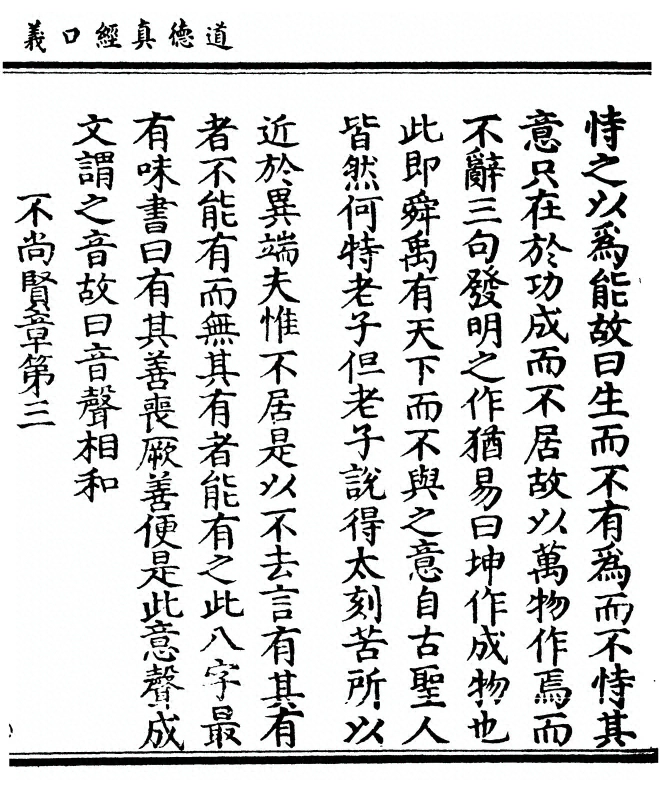 道德真經口義
恃之以為能故曰生而不有為而不恃其
意只在於功成而不居故以萬物作焉而
不辭三句發明之作猶易曰坤作成物也
此即舜禹有天下而不與之意自古聖人
皆然何特老子但老子說得太刻苦所以
近於異端夫惟不居是以不去言有其有
者不能有而無其有者能有之此八字最
有味書曰有其善喪厥善便是此意聲成
文謂之音故曰音聲相和
不尚賢章第三